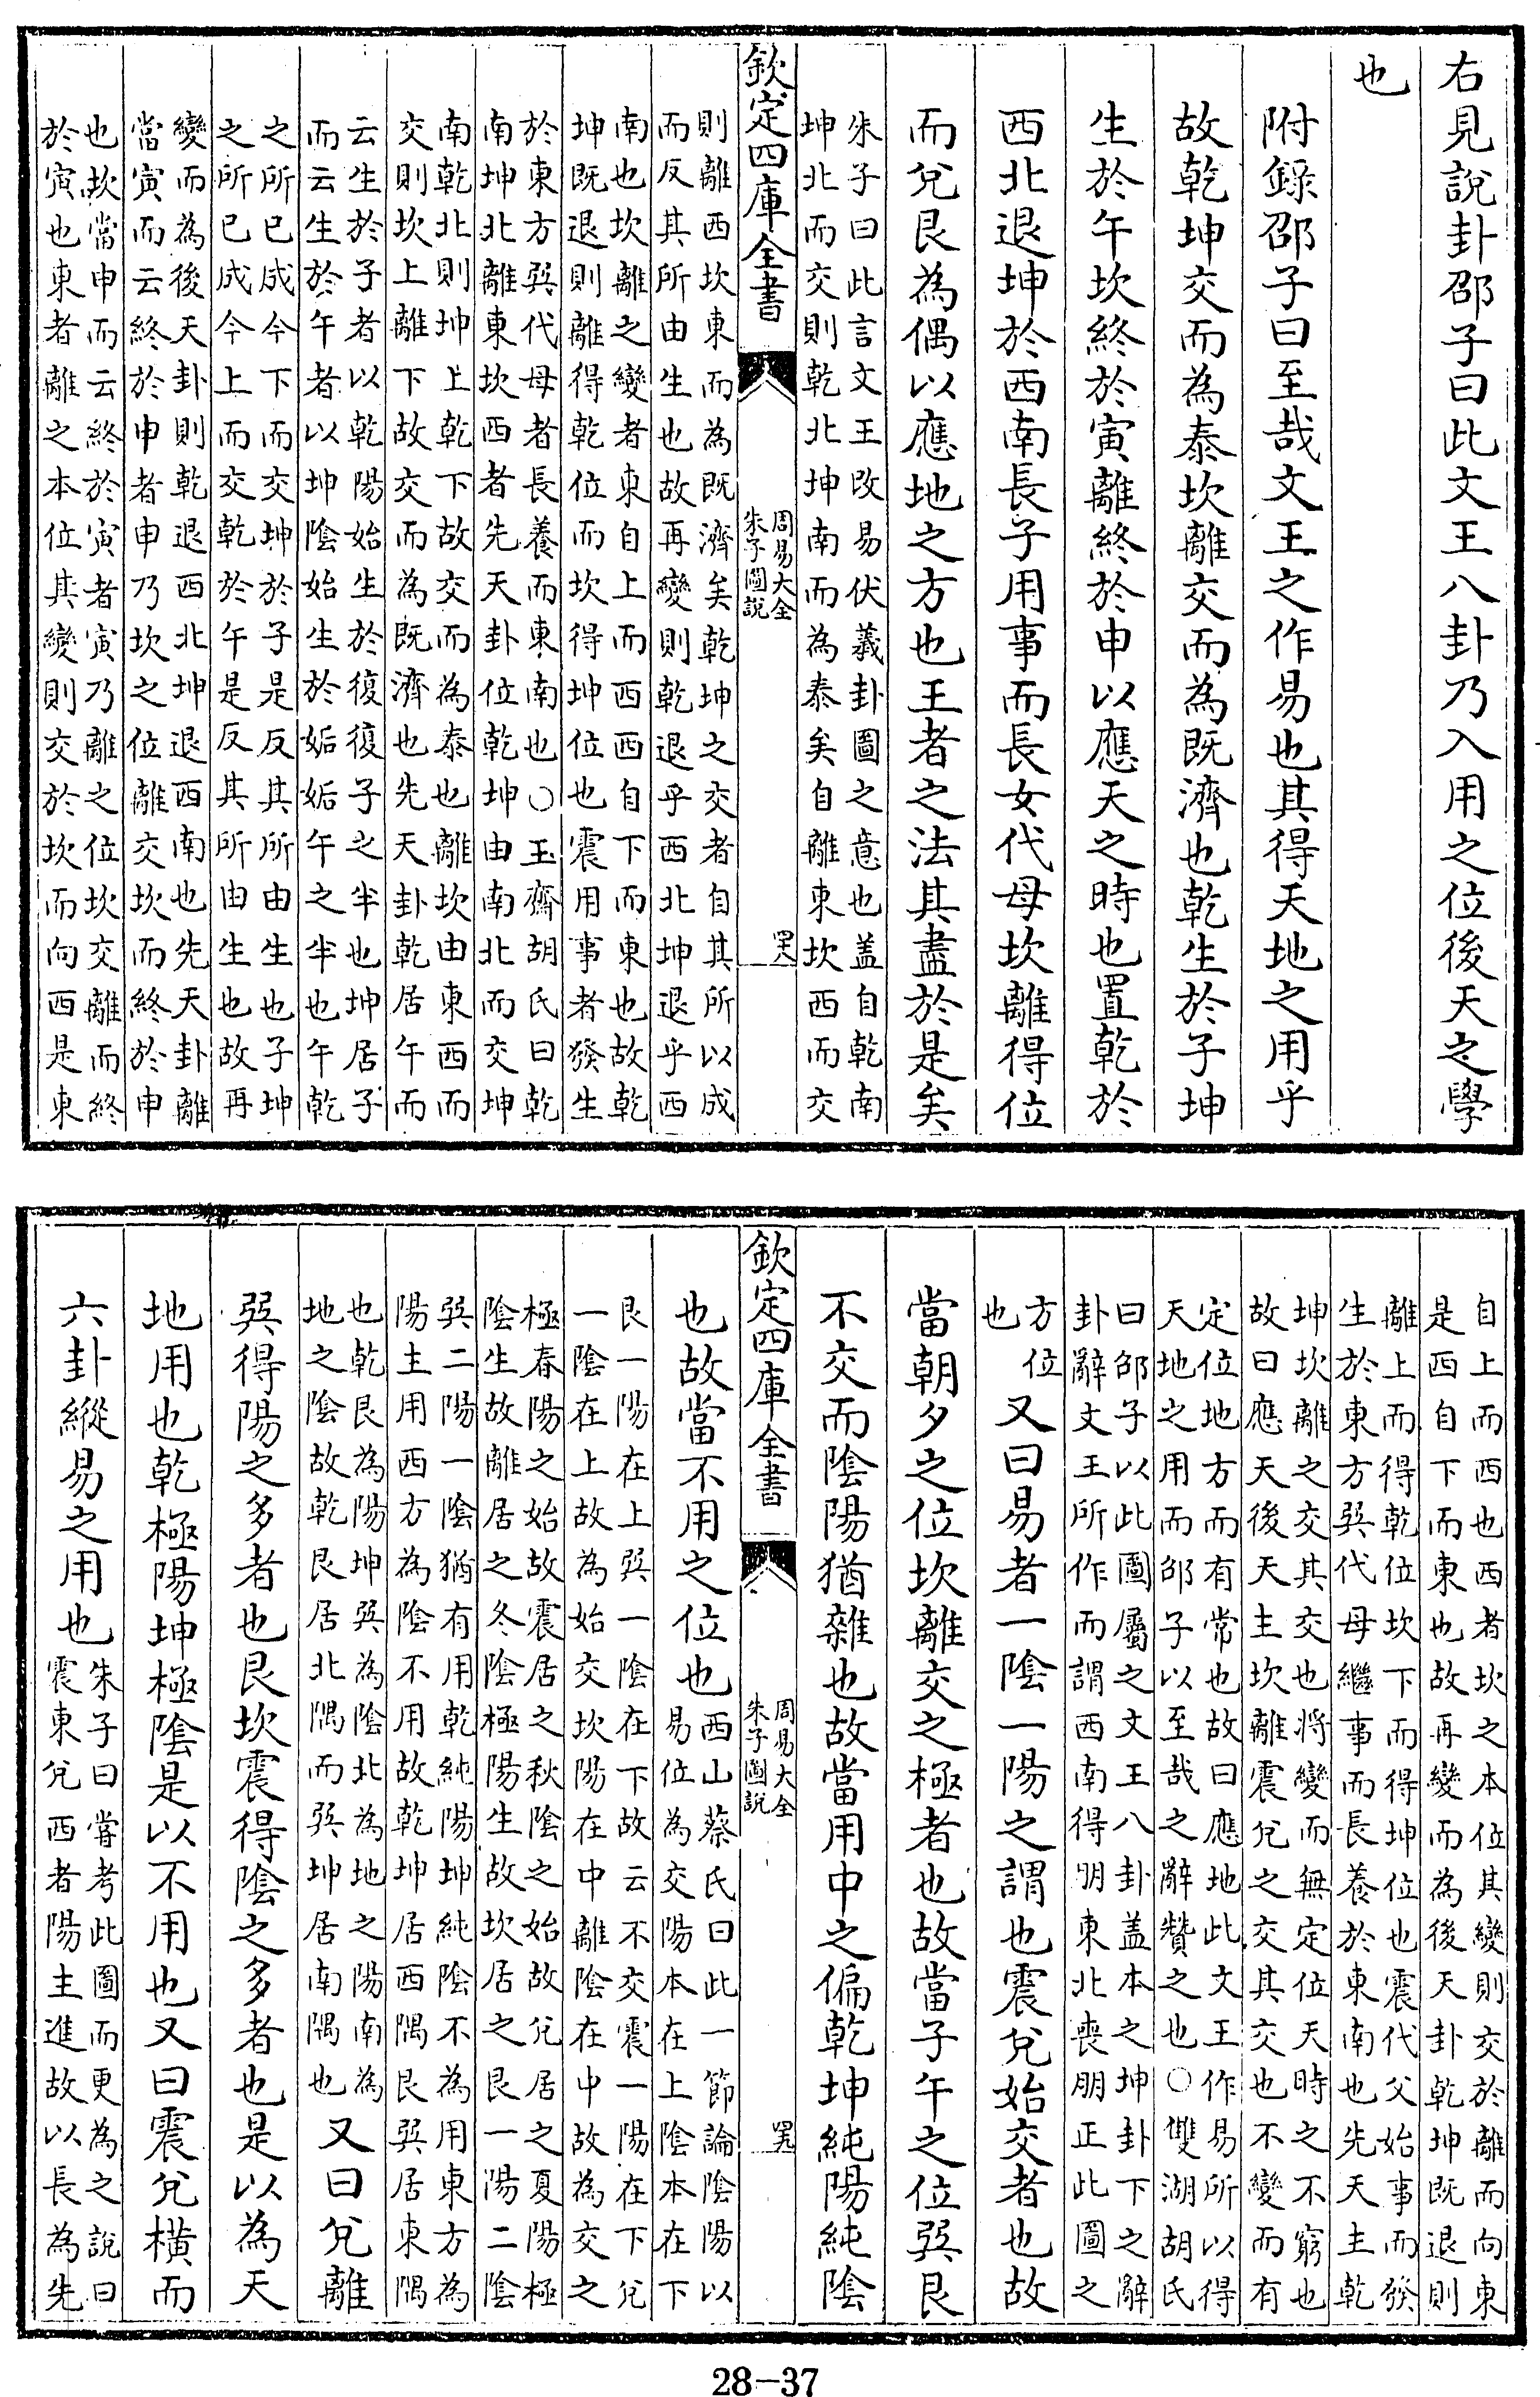 右見說卦邵子曰此文王八卦乃入用之位後天之學
也
附錄邵子曰至哉文王之作易也其得天地之用乎
故乾坤交而為泰坎離交而為既濟也乾生於子坤
生於午坎終於寅離終於申以應天之時也置乾於
西北退坤於西南長子用事而長女代母坎離得位
而兌艮為偶以應地之方也王者之法其盡於是矣
朱子曰此言文王改易伏羲卦圖之意也盖自乾南
坤北而交則乾北坤南而為泰矣自離東坎西而交
欽定四庫全書
周易大全
朱子圖說
則離西坎東而為既濟矣乾坤之交者自其所以成
而反其所由生也故再變則乾退乎西北坤退乎西
南也坎離之變者東自上而西西自下而東也故乾
坤既退則離得乾位而坎得坤位也震用事者發生
於東方巽代母者長養而東南也○玉齋胡氏曰乾
南坤北離東坎西者先天卦位乾坤由南北而交坤
南乾北則坤上乾下故交而為泰也離坎由東西而
交則坎上離下故交而為既濟也先天卦乾居午而
云生於子者以乾陽始生於復復子之半也坤居子
而云生於午者以坤陰始生於姤姤午之半也午乾
之所已成今下而交坤於子是反其所由生也子坤
之所已成今上而交乾於午是反其所由生也故再
變而為後天卦則乾退西北坤退西南也先天卦離
當寅而云終於申者申乃坎之位離交坎而終於申
也坎當申而云終於寅者寅乃離之位坎交離而終
於寅也東者離之本位其變則交於坎而向西是東
自上而西也西者坎之本位其變則交於離而向東
是西自下而東也故再變而為後天卦乾坤既退則
離上而得乾位坎下而得坤位也震代父始事而發
生於東方巽代母繼事而長養於東南也先天主乾
坤坎離之交其交也將變而無定位天時之不窮也
故曰應天後天主坎離震兌之交其交也不變而有
定位地方而有常也故曰應地此文王作易所以得
天地之用而邵子以至哉之辭贊之也○雙湖胡氏
曰邵子以此圖屬之文王八卦盖本之坤卦下之辭
卦辭文王所作而謂西南得朋東北喪朋正此圖之
方位
也
又曰易者一陰一陽之謂也震兌始交者也故
當朝夕之位坎離交之極者也故當子午之位巽艮
不交而陰陽猶雜也故當用中之偏乾坤純陽純陰
欽定四庫全書
周易大全
朱子圖說
也故當不用之位也
西山蔡氏曰此一節論陰陽以
易位為交陽本在上陰本在下
艮一陽在上巽一陰在下故云不交震一陽在下兌
一陰在上故為始交坎陽在中離陰在中故為交之
極春陽之始故震居之秋陰之始故兌居之夏陽極
陰生故離居之冬陰極陽生故坎居之艮一陽二陰
巽二陽一陰猶有用乾純陽坤純陰不為用東方為
陽主用西方為陰不用故乾坤居西隅艮巽居東隅
也乾艮為陽坤巽為陰北為地之陽南為
地之陰故乾艮居北隅而巽坤居南隅也
又曰兌離
巽得陽之多者也艮坎震得陰之多者也是以為天
地用也乾極陽坤極陰是以不用也又曰震兌橫而
六卦縱易之用也
朱子曰嘗考此圖而更為之說曰
震東兌西者陽主進故以長為先
28-37